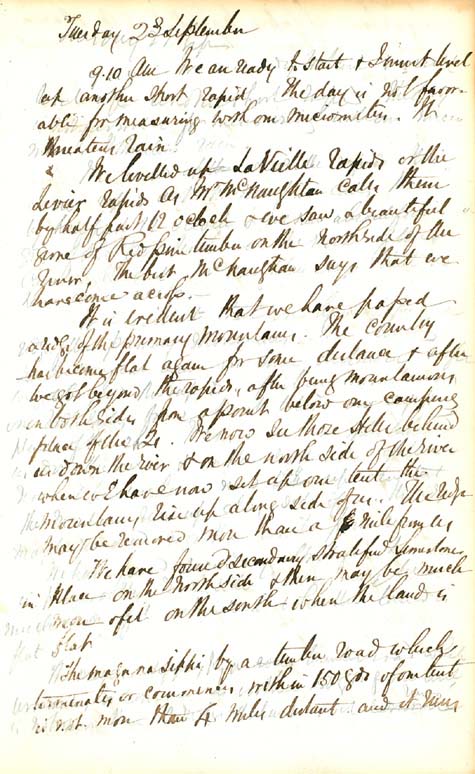 Tuesday 2d September
9.10 AM We are ready to start & I must level
up another short rapid. The day is not favor-
able for measuring with our micrometer. It
threatens rain.
& We levelled up La Vieille Rapids or the
Levier Rapids as Mr McNaughtan calls them
by half past 12 o clock & we saw a beautiful
grove of Red pine timber on the north side of the
river, the best McNaughtan says that we
have come across.—
It is evident that we have passed
a ridge of the primary mountains. The country
has become flat again for some distance & after
we got beyond the rapids, after being mountainous
on both sides from a point below our camping
place of the 21. We now see those hills behind
us down the river & on the north side of the river
where we have now set up our tent the
mountains rise up along side of us. The ridge
may be removed more than a mile from us
We have found secondary stratified limestone
in place on the north side & there may be much
more of it on the south where the land is
flat
The maganasippi by a timber road which
terminates or commences within 150 yds of our tent
is not more than 4 miles distant and it runs